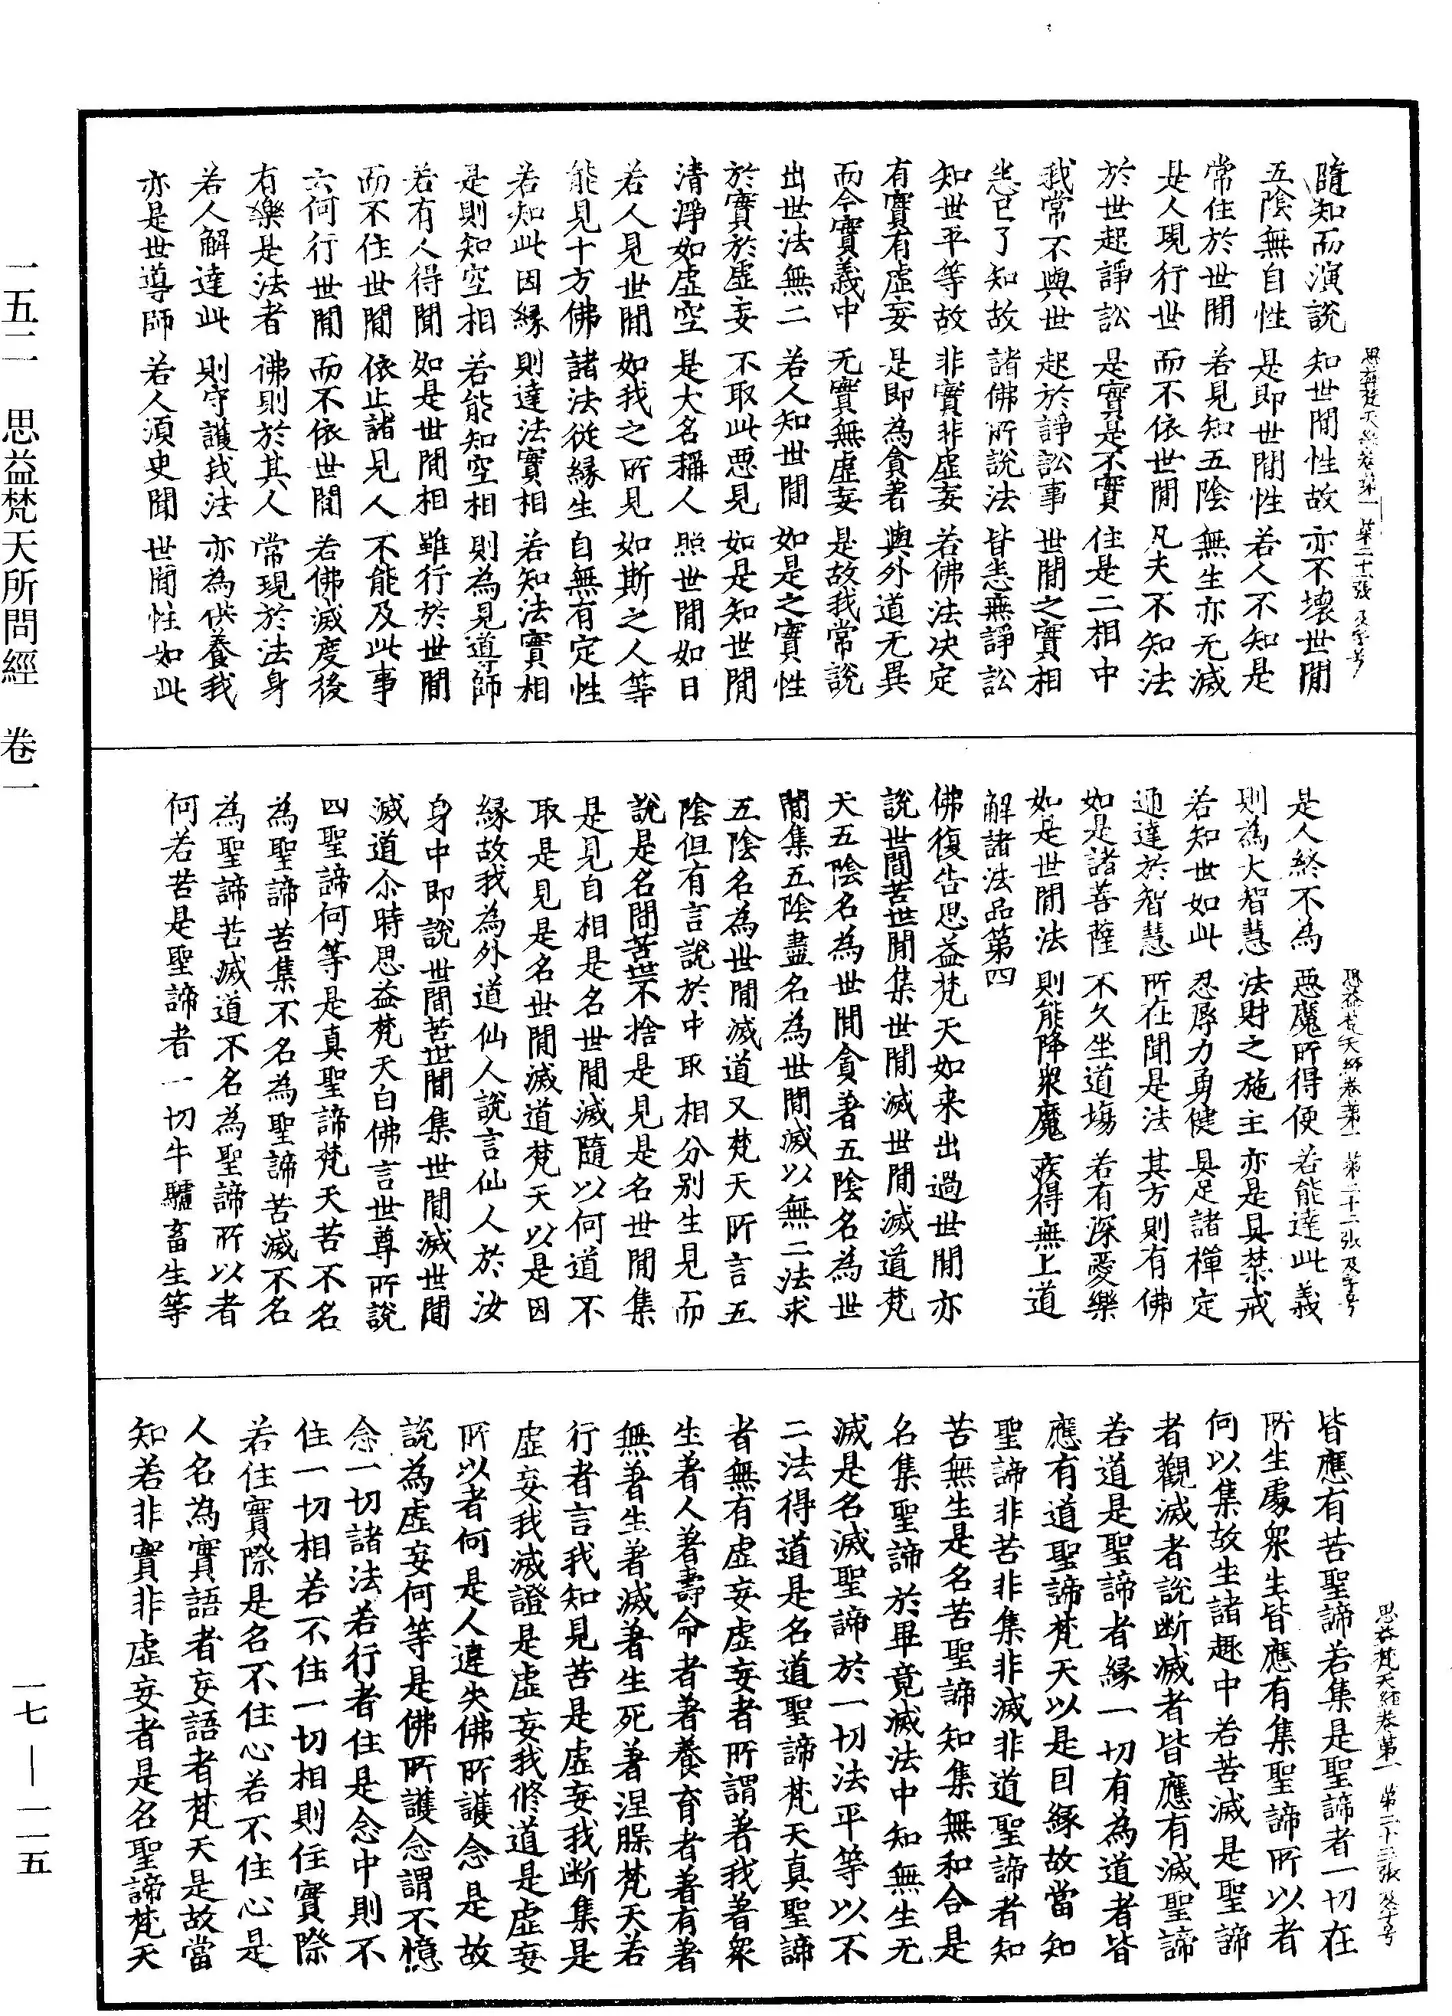 隨知而演說　知世間性故　亦不壞世間
五陰無自性　是即世間性　若人不知是
常住於世間　若見知五陰　無生亦无滅
是人現行世　而不依世間　凡夫不知法
於世起諍訟　是實是不實　住是二相中
我常不與世　起於諍訟事　世間之實相
悉已了知故　諸佛所說法　皆悉無諍訟
知世平等故　非實非虛妄　若佛法決定
有實有虛妄　是即為貪著　與外道无異
而今實義中　无實無虛妄　是故我常說
出世法無二　若人知世間　如是之實性
於實於虛妄　不取此惡見　如是知世間
清淨如虛空　是大名稱人　照世間如日
若人見世間　如我之所見　如斯之人等
能見十方佛　諸法從緣生　自無有定性
若知此因緣　則達法實相　若知法實相
是則知空相　若能知空相　則為見導師
若有人得聞　如是世間相　雖行於世間
而不住世間　依止諸見人　不能及此事
云何行世間　而不依世間　若佛滅度後
有樂是法者　佛則於其人　常現於法身
若人解達此　則守護我法　亦為供養我
亦是世導師　若人須臾聞　世間性如此
思益梵天經卷第一　第二十一張　及字号
是人終不為　惡魔所得便　若能達此義
則為大智慧　法財之施主　亦是具禁戒
若知世如此　忍辱力勇健　具足諸禪定
通達於智慧　所在聞是法　其方則有佛
如是諸菩薩　不久坐道場　若有深愛樂
如是世間法　則能降衆魔　疾得無上道
解諸法品第四
佛復告思益梵天如来出過世間亦
說世間苦世間集世間滅世間滅道梵
天五陰名為世間貪著五陰名為世
間集五陰盡名為世間滅以無二法求
五陰名為世間滅道又梵天所言五
陰但有言說於中取相分別生見而
說是名世間苦不捨是見是名世間集
是見自相是名世間滅隨以何道不
取是見是名世間滅道梵天以是因
緣故我為外道仙人說言仙人於汝
身中即說世間苦世間集世間滅世間
滅道尒時思益梵天白佛言世尊所說
四聖諦何等是真聖諦梵天苦不名
為聖諦苦集不名為聖諦苦滅不名
為聖諦苦滅道不名為聖諦所以者
何若苦是聖諦者一切牛驢畜生等
思益梵天經卷第一　第二十二張　及字号
皆應有苦聖諦若集是聖諦者一切在
所生處衆生皆應有集聖諦所以者
何以集故生諸趣中若苦滅是聖諦
者觀滅者說断滅者皆應有滅聖諦
若道是聖諦者緣一切有為道者皆
應有道聖諦梵天以是因緣故當知
聖諦非苦非集非滅非道聖諦者知
苦無生是名苦聖諦知集無和合是
名集聖諦於畢竟滅法中知無生无
滅是名滅聖諦於一切法平等以不
二法得道是名道聖諦梵天真聖諦
者無有虛妄虛妄者所謂著我著衆
生著人著壽命者著養育者著有著
無著生著滅著生死著涅槃梵天若
行者言我知見苦是虛妄我断集是
虛妄我滅證是虛妄我修道是虛妄
所以者何是人違失佛所護念是故
說為虛妄何等是佛所護念謂不憶
念一切諸法若行者住是念中則不
住一切相若不住一切相則住實際
若住實際是名不住心若不住心是
人名為實語者妄語者梵天是故當
知若非實非虛妄者是名聖諦梵天
思益梵天經卷第一　第二十三張　及字号
二五二　思益梵天所問經　卷一
一七—一一五